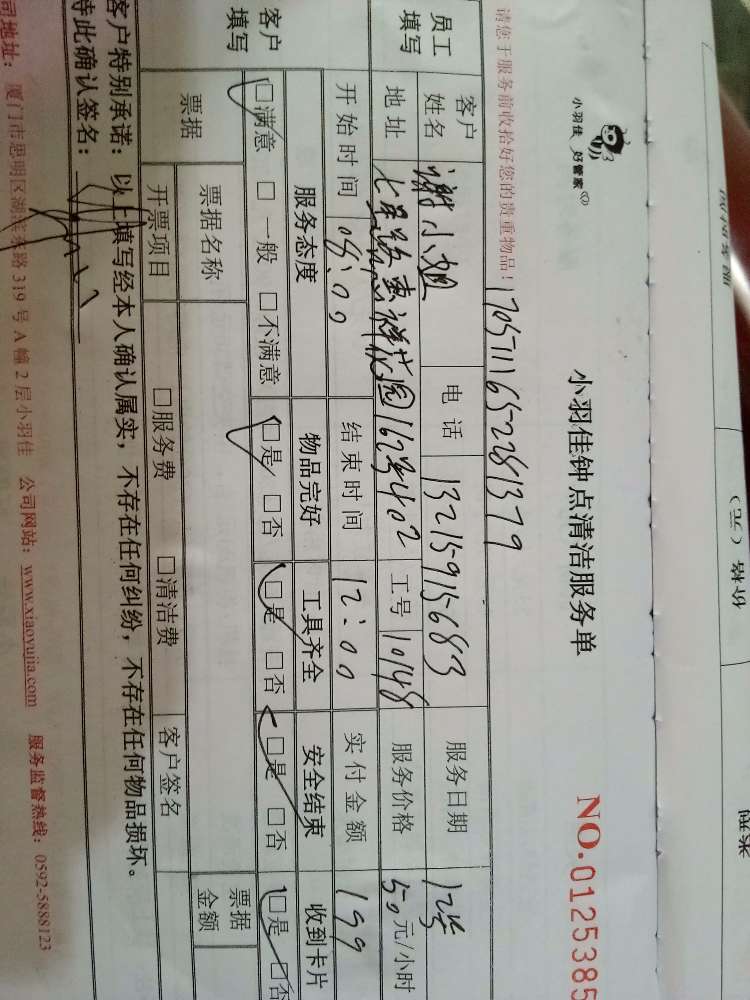 小羽佳 好管家
小羽佳钟点清洁服务单
NO.0125385
请您于服务前收拾好您的贵重物品!
员工填写
客户姓名 谢小姐 电话 13215915683 服务日期 12号
地址 七星路惠祥花园162号402 工号 10148 服务价格 50元/小时
开始时间 08:00 结束时间 12:00 实付金额 199
客户填写
服务态度 物品完好 工具齐全 安全结束 收到卡片
□满意 □一般 □不满意 □是 □否 □是 □否 □是 □否 □是 □否
票据 票据名称 票据金额
开票项目 □服务费 □清洁费 客户签名
客户特别承诺:以上填写经本人确认属实,不存在任何纠纷,不存在任何物品损坏。
特此确认签名:
司地址: 厦门市思明区湖滨东路319号A幢2层小羽佳 公司网站:www.xiaoyujia.com 服务监督热线:0592-5888123